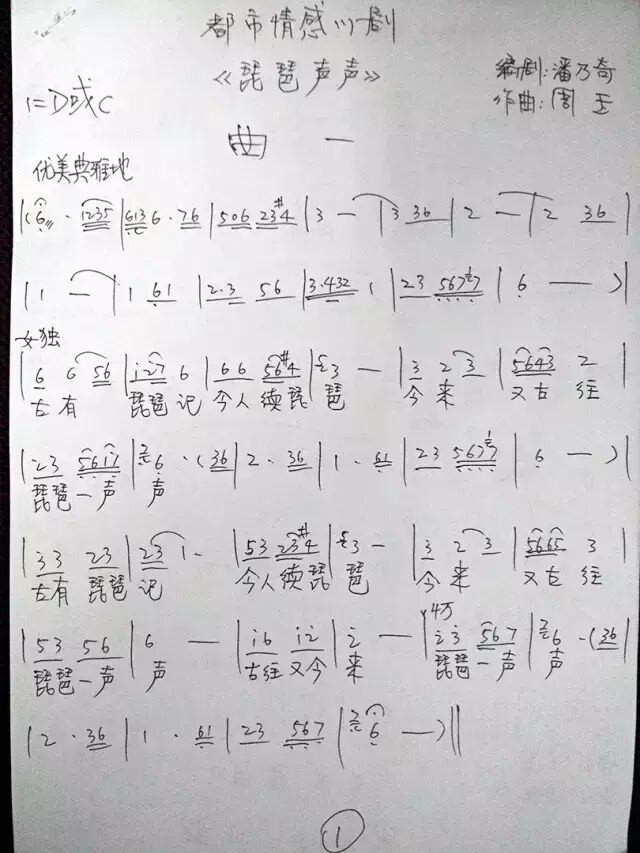 都市情感川剧
《琵琶声声》
编剧:潘乃奇
作曲:周玉
1=D或C
曲一
优美典雅地
|(6· 1235|6136·76|506 23#4|3 —|3 36|2 —|2 36|
|1 —|1 61|2·3 56|3·432 1|23 567#7|6 — —)|
女独
|6 6 56|i27 6|66 56#4|3 —|3 2 3|5643 2|
古有 琵琶记 今人续琵琶 今来 又古往
|23 5617|6·(36|2·36|1·61|23 567#7|6 — —)|
琵琶一声声
|33 23|23 1·|53 23#4|3 —|3 2 3|5665 3|
古有琵琶记 今人续琵琶 今来 又古往
|53 56|6 —|i6 i2|2 —|23 567|6·(36|
4万
琵琶一声声 古往又今来 琵琶一声声
|2·36|1·61|23 567|6 —)||
1